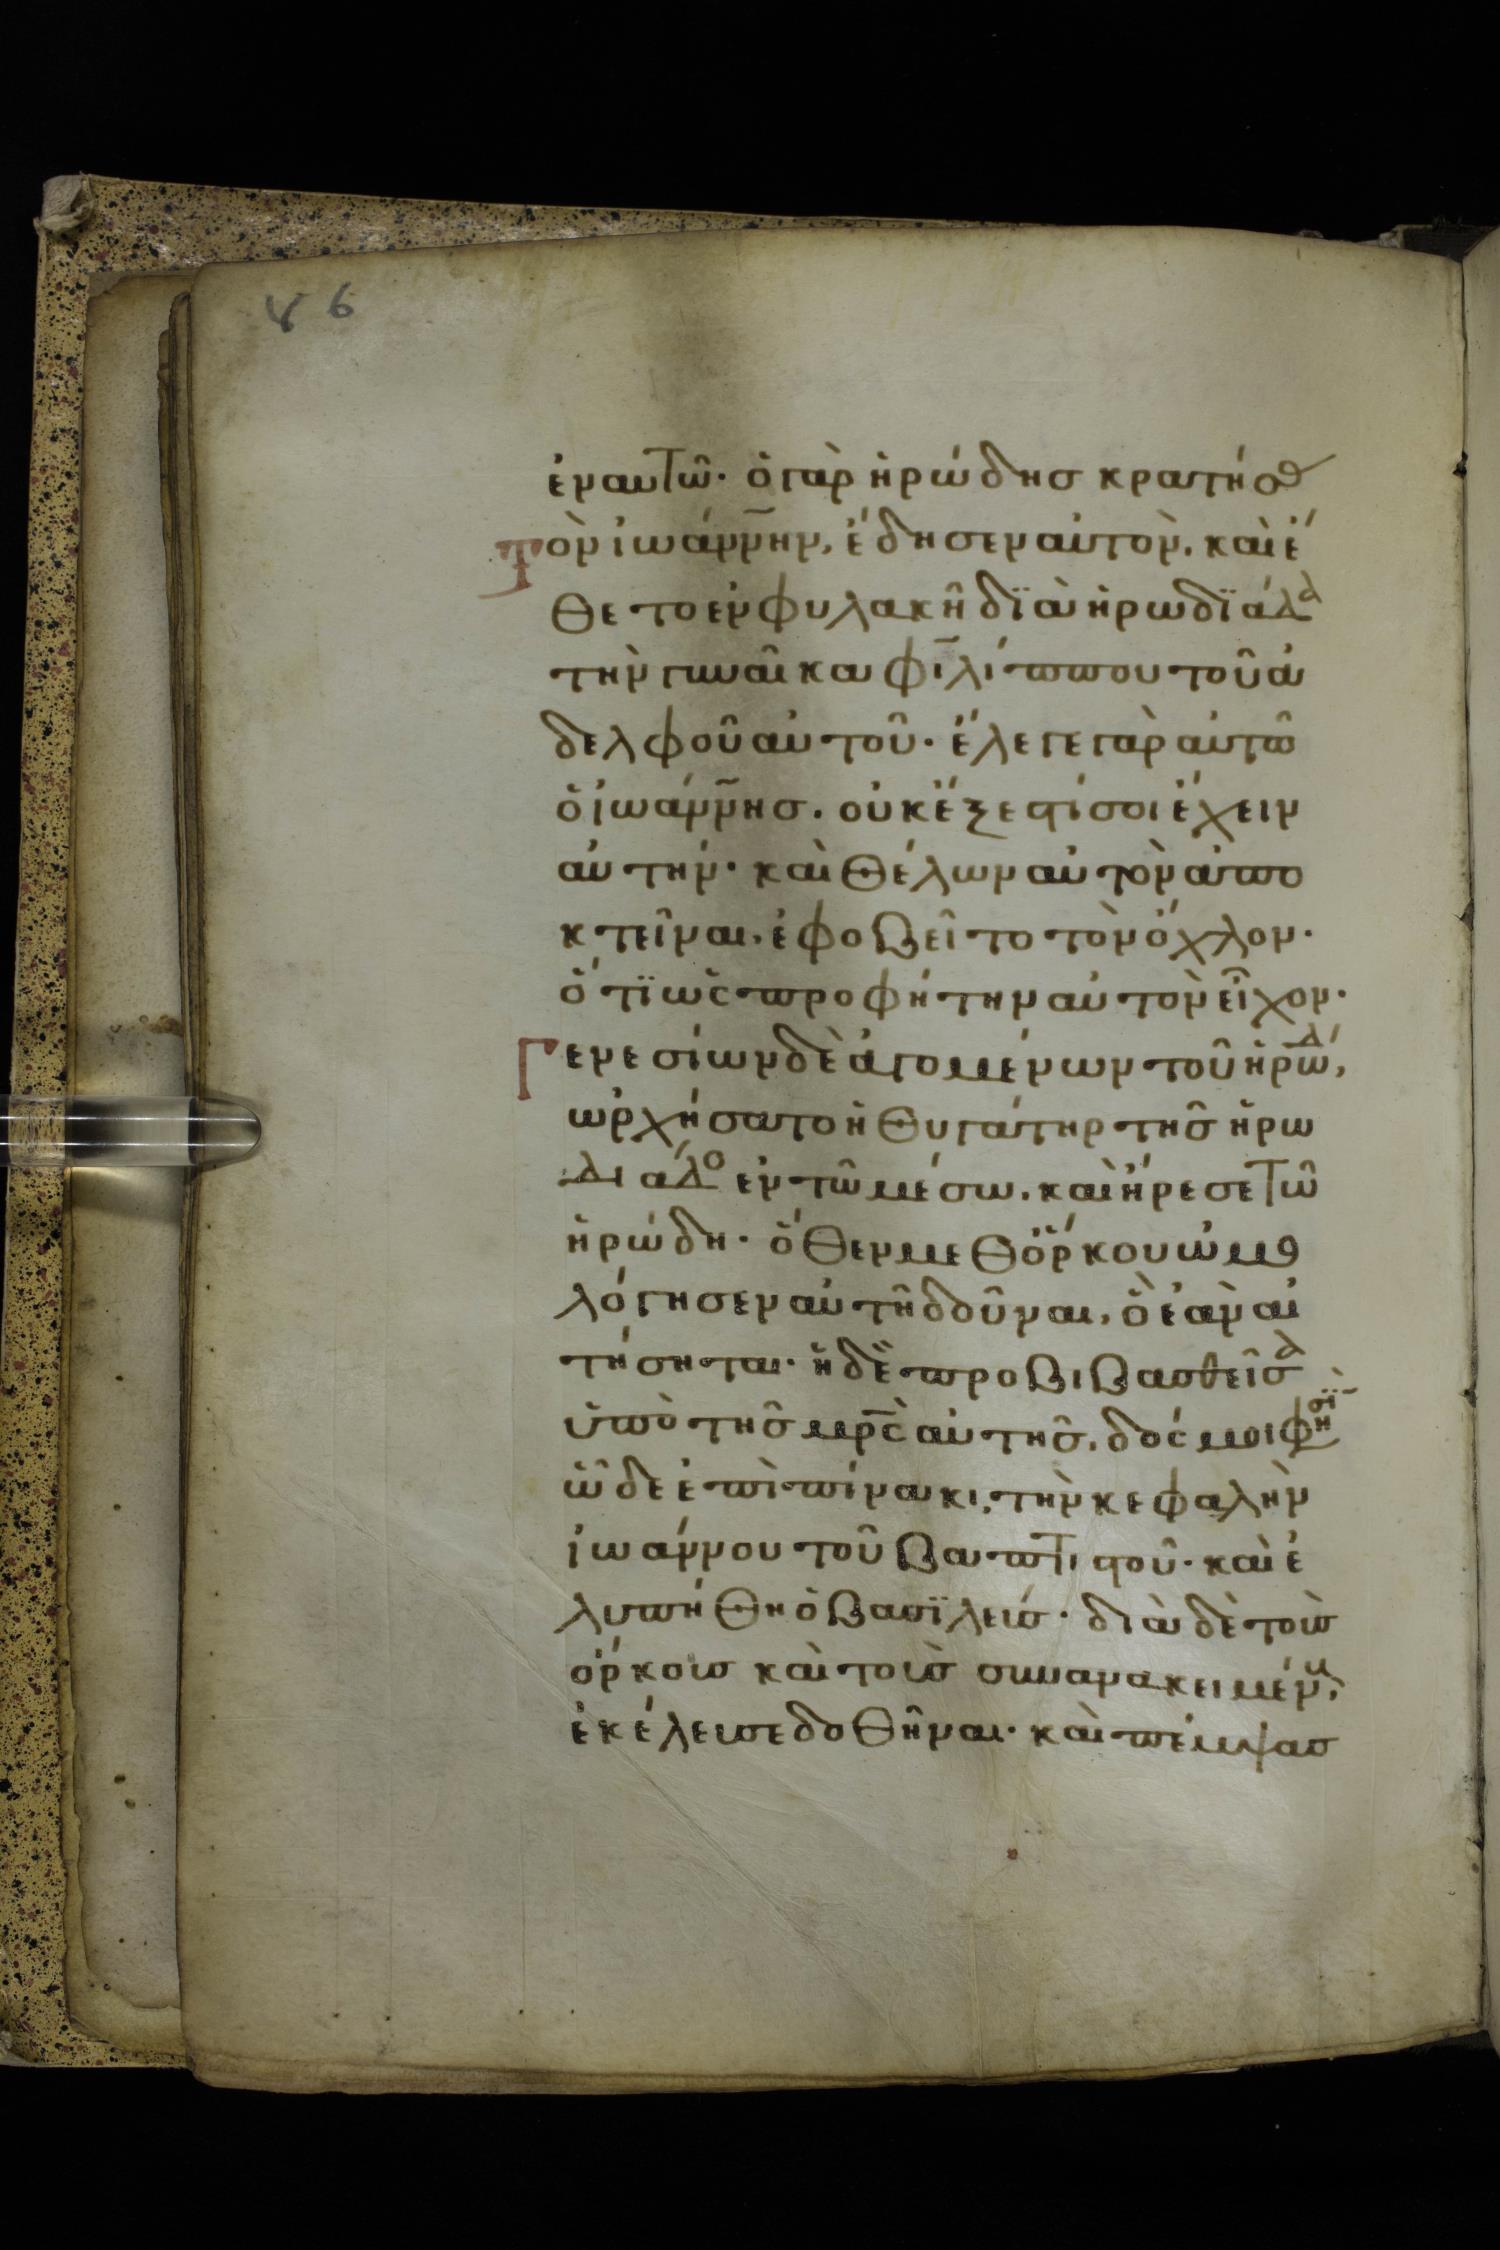 46
ἐν αυτῶ· ὁ γὰρ ἡρώδης κρατήσας
Τὸν ἰωάννην, ἔδησεν αὐτὸν. καὶ ἔ
θετο ἐν φυλακῆ δϊὰ ἡρωδϊάδα
τὴν γυναῖκα φιλίππου τοῦ ἀ
δελφοῦ αὐτοῦ· ἔλεγε γὰρ αὐτῶ
ὁ ἰωάννης. οὐκ ἔξεστί σοι ἔχειν
αὐτήν· καὶ θέλων αὐτὸν ἀπο
κτεῖναι, ἐφοβεῖτο τὸν ὄχλον·
ὅτϊ ὡς προφήτην αὐτὸν εἶχον·
Γενεσίων δὲ ἀγομένων τοῦ ἡρώδ,
ὠρχήσατο ἡ θυγάτηρ τῆς ἡρω
διάδο ἐν τῶ μέσω. καὶ ἤρεσε τῶ
ἡρώδη· ὅθεν μεθ ὅρκου ὡμο
λόγησεν αὐτῆ δοῦναι, ὃ ἐὰν αἰ
τήσηται· ἡ δὲ προβιβασθεῖσα
ὑπὸ τῆς μρς αὐτῆς. δός μοι φησϊ
ὧδε ἐπὶ πίνακι, τὴν κεφαλὴν
ἰωάννου τοῦ βαπτιστοῦ· καὶ ἐ
λυπήθη ὁ βασϊλεύς· διὰ δὲ τοὺς
ὅρκους καὶ τοὺς συνανακειμέν,
ἐκέλευσε δοθῆναι· καὶ πέμψας